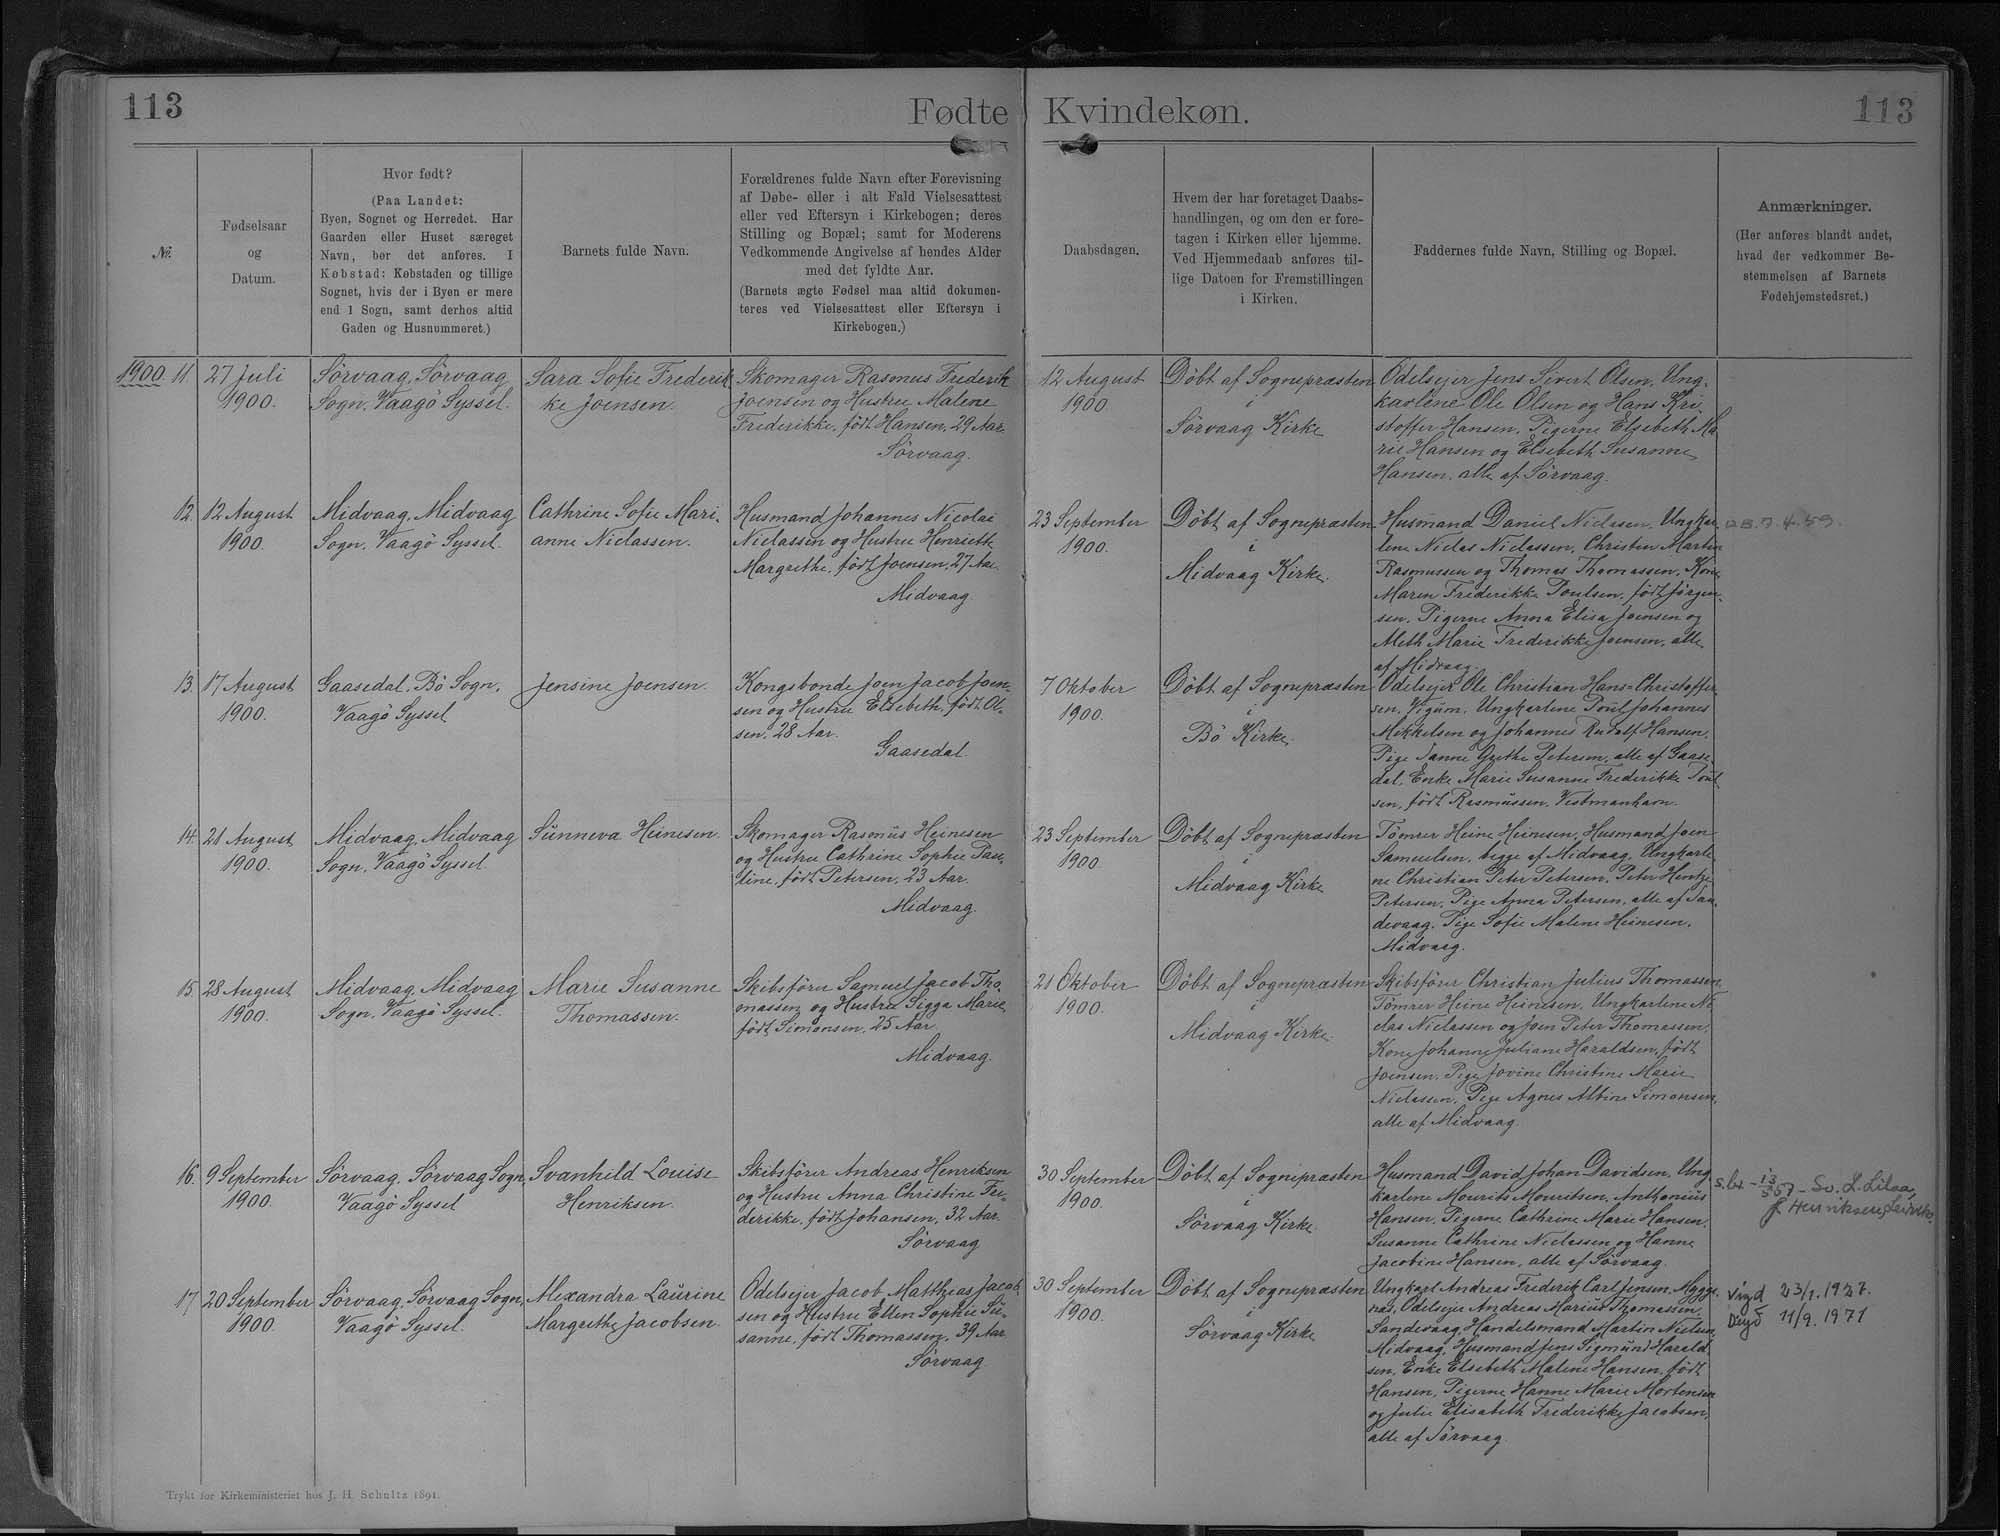 113
Fødte
Kvindekøn.
113
Nr.
Fødselsaar
og
Datum.
Hvor født?
(Paa Landet:
Byen, Sognet og Herredet. Har
Gaarden eller Huset særeget
Navn, bør det anføres. I
Købstad: Købstaden og tillige
Sognet, hvis der i Byen er mere
end 1 Sogn, samt derhos altid
Gaden og Husnummeret.)
Barnets fulde Navn.
Forældrenes fulde Navn efter Forevisning
af Døbe- eller i alt Fald Vielsesattest
eller ved Eftersyn i Kirkebogen; deres
Stilling og Bopæl; samt for Moderens
Vedkommende Angivelse af hendes Alder
med det fyldte Aar.
(Barnets ægte Fødsel maa altid dokumen-
teres ved Vielsesattest eller Eftersyn i
Kirkebogen.)
Daabsdagen.
Hvem der har foretaget Daabs-
handlingen, og om den er fore-
tagen i Kirken eller hjemme.
Ved Hjemmedaab anføres til-
lige Datoen for Fremstillingen
i Kirken.
Faddernes fulde Navn, Stilling og Bopæl.
Anmærkninger.
(Her anføres blandt andet,
hvad der vedkommer Be-
stemmelsen af Barnets
Fødehjemstedsret.)
1900. 11.
27 Juli
1900.
Sörvaag, Sörvaag
Sogn, Vaagö Syssel.
Sara Sofie Frederik
ke Joensen.
Skomager Rasmus Frederik
Joensen og Hustru Malene
Frederikke, född Hansen, 29 Aar.
Sörvaag.
12 August
1900.
Döbt af Sognepræsten
i
Sörvaag Kirke
Odelsejer Jens Sivert Olsen, Ung-
karlene Ole Olsen og Hans Kri-
stoffer Hansen, Pigerne Elsebeth Ma
rie Hansen og Elsebeth Susanne
Hansen, alle af Sörvaag.
12.
12 August
1900.
Midvaag, Midvaag
Sogn, Vaagö Syssel.
Cathrine Sofie Mari-
anne Niclassen.
Husmand Johannes Nicolai
Niclassen og Hustru Henriette
Margrethe, född Joensen, 27 Aar.
Midvaag.
23 September
1900.
Döbt af Sognepræsten
i
Midvaag Kirke.
Husmand Daniel Niclasen, Ungkar
lene Niclas Niclassen, Christen Martin
Rasmussen og Thomas Thomassen, Kone
Maren Frederikke Poulsen, född Jörgen-
sen, Pigerne Anna Elisa Joensen og
Meth Marie Frederikke Joensen, alle
af Midvaag.
7.4.59.
13.
17 August
1900.
Gaasedal, Bö Sogn,
Vaagö Syssel
Jensine Joensen.
Kongsbonde Joen Jacob Joen-
sen og Hustru Elsebeth, född Ol-
sen, 28 Aar.
Gaasedal
7 Oktober
1900.
Döbt af Sognepræsten
i
Bö Kirke.
Odelsejer Ole Christian Hans-Christoffer
sen, Vigum, Ungkarlene Poul Johannes
Mikkelsen og Johannes Rudolf Hansen,
Pige Sanne Grethe Petersen, alle af Gaase-
dal, Enke Marie Susanne Frederikke Poul
sen, född Rasmussen, Vestmanhavn.
14.
21 August
1900.
Midvaag, Midvaag
Sogn, Vaagö Syssel.
Sunneva Heinesen.
Skomager Rasmus Heinesen
og Hustru Cathrine Sophie Pau-
line, född Petersen, 23 Aar.
Midvaag.
23 September
1900.
Döbt af Sognepræsten
i
Midvaag Kirke
Tömrer Heine Heinesen, Husmand Joen
Samuelsen, begge af Midvaag, Ungkarle
ne Christian Peter Petersen, Peter Hentze
Petersen, Pige Anna Petersen, alle af San-
devaag, Pige Sofie Malene Heinesen,
Midvaag.
15.
28 August
1900.
Midvaag, Midvaag
Sogn, Vaagö Syssel.
Marie Susanne
Thomassen.
Skibsförer Samuel Jacob Tho-
massen og Hustru Sigga Marie
född Simonsen, 25 Aar.
Midvaag.
21 Oktober
1900.
Döbt af Sognepræsten
i
Midvaag Kirke.
Skibsförer Christian Julius Thomassen,
Tömrer Heine Heinesen, Ungkarlene Ni-
clas Niclassen og Joen Peter Thomassen,
Kone Johanne Juliane Haraldsen, född
Joensen, Pige Jovine Christine Marie
Niclassen, Pige Agnes Albine Simonsen,
alle af Midvaag.
16.
9 September
1900.
Sörvaag, Sörvaag Sogn,
Vaagö Syssel
Svanhild Louise
Henriksen.
Skibsförer Andreas Henriksen
og Hustru Anna Christine Fre-
derikke, född Johansen, 32 Aar.
Sörvaag
30 September
1900.
Döbt af Sognepræsten
i
Sörvaag Kirke.
Husmand David Johan Davidsen, Ung
karlene Mourits Mouritsen, Anthonius
Hansen, Pigerne Cathrine Marie Hansen,
Susanne Cathrine Niclassen og Hanne
Jacobine Hansen, alle af Sörvaag.
Sv. L. Lilaa,
f. Henriksen,
17
20 September
1900.
Sörvaag, Sörvaag Sogn,
Vaagö Syssel.
Alexandra Laurine
Margrethe Jacobsen.
Odelsejer Jacob Matthias Jacob
sen og Hustru Ellen Sophie Su-
sanne, född Thomassen, 39 Aar.
Sörvaag
30 September
1900.
Döbt af Sognepræsten
i
Sörvaag Kirke
Ungkarl Andreas Frederik Carl Jensen, Mygge-
näs, Odelsejer Andreas Marius Thomassen,
Sandevaag, Handelsmand Martin Nielsen,
Midvaag, Husmand Jens Sigmund Harald
sen, Enke Elsebeth Malene Hansen, född
Hansen, Pigerne Hanne Marie Mortensen
og Julie Elisabeth Frederikke Jacobsen,
alle af Sörvaag.
Vigd 23/1. 1927.
Deyð 11/9. 1971
Trykt for Kirkeministeriet hos J. H. Schultz 1891.